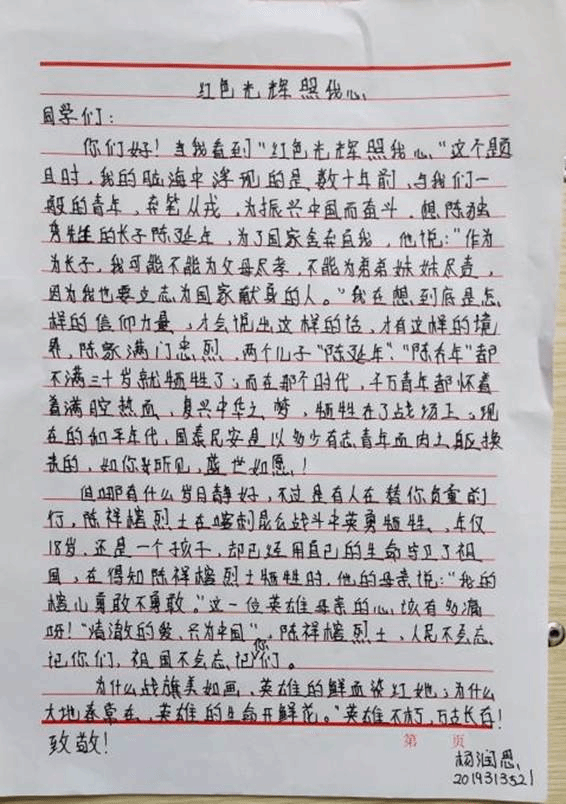 红色光辉照我心
同学们：
你们好！当我看到“红色光辉照我心”这个题
目时，我的脑海中浮现的是数十年前，与我们一
般的青年，弃笔从戎，为振兴中国而奋斗，想陈独
秀先生的长子陈延年，为了国家舍弃自我，他说：“作为
为长子，我可能不能为父母尽孝，不能为弟弟妹妹尽责，
因为我也要立志为国家献身的人。”我在想到底是怎
样的信仰力量，才会说出这样的话，才有这样的境
界，陈家满门忠烈，两个儿子“陈延年”、“陈乔年”都
不满三十岁就牺牲了；而在那个时代，千万青年都怀着
着满腔热血，复兴中华之梦，牺牲在了战场上；现
在的和平年代，国泰民安是以多少有志青年血肉之躯换
来的，如你我所见，盛世如愿！
但哪有什么岁月静好，不过是有人在替你负重前
行，陈祥榕烈士在喀喇昆仑战斗中英勇牺牲、年仅
18岁，还是一个孩子，却已经用自己的生命守卫了祖
国，在得知陈祥榕烈士牺牲时，他的母亲说：“我的
榕儿勇敢不勇敢。”这一位英雄母亲的心，该有多痛
呀！“清澈的爱、只为中国”，陈祥榕烈士、人民不会忘
记你们，祖国不会忘记你们。
为什么战旗美如画，英雄的鲜血染红她；为什么
大地春常在，英雄的生命开鲜花。”英雄不朽，万古长存！
致敬！
第 页
杨润恩
2019313521